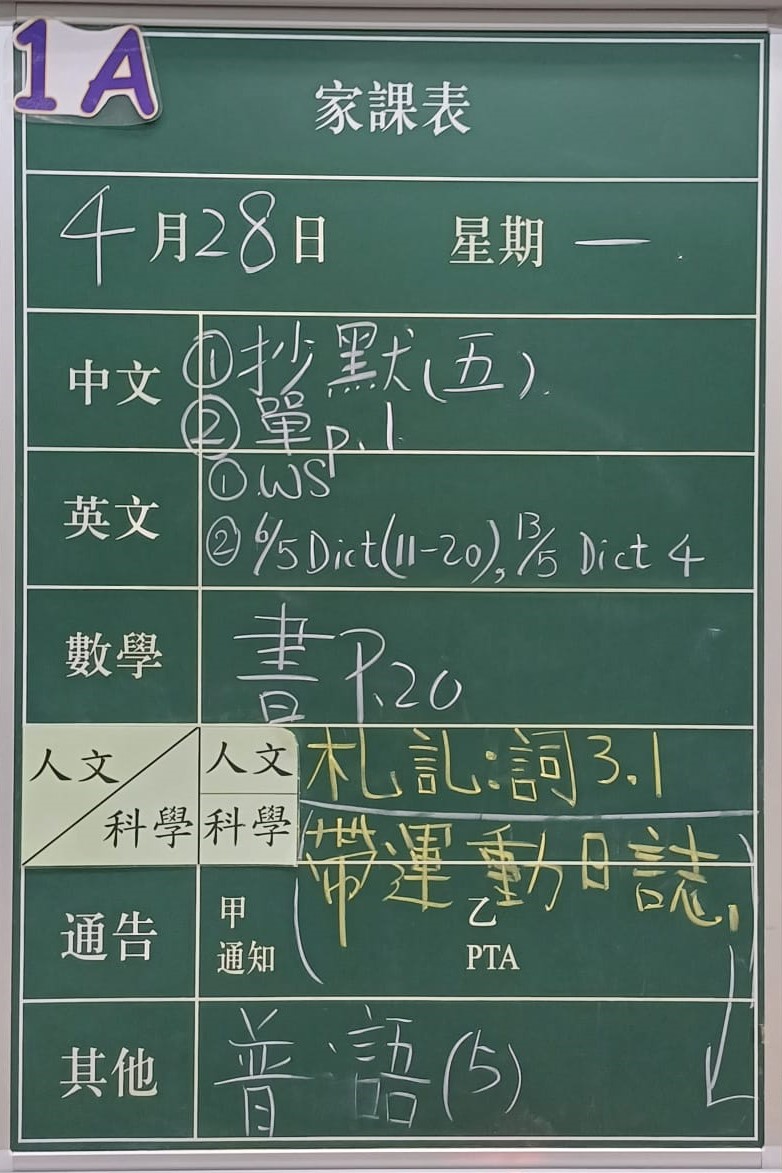 1A
家課表
4月28日 星期一.
中文 ①抄默(五).
②單p.1
英文 ①.WS
②6/5 Dict(11-20), 13/5 Dict 4
數學 書P.20
人文/科學 人文 札記:詞3.1
科學 帶運動日誌
通告 甲 乙
通知 PTA
其他 普.語(5)